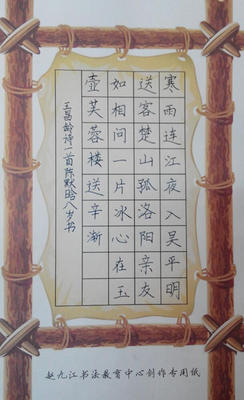 寒雨连江夜入吴平明
送客楚山孤洛阳亲友
如相问一片冰心在玉
壶芙蓉楼送辛渐
王昌龄诗一首陈默晗八岁书
赵九江书法教育中心创作专用纸